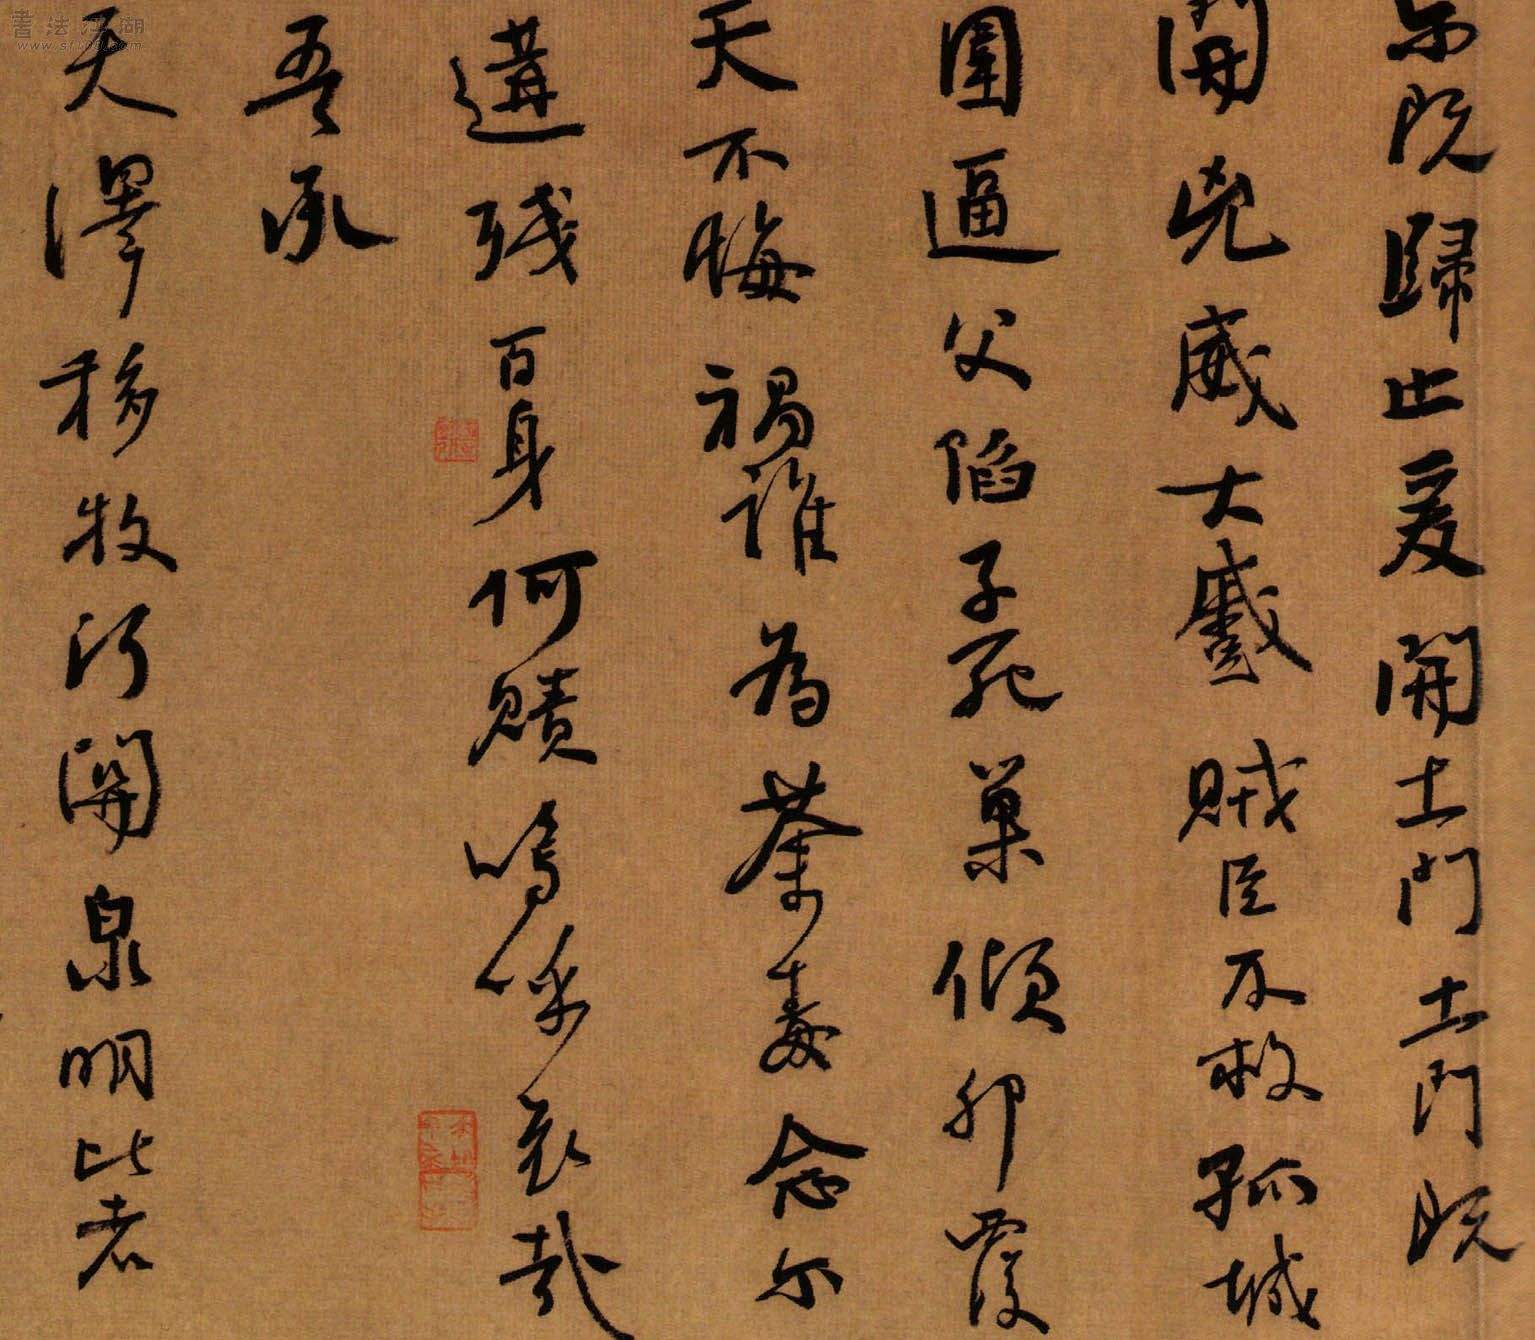 尔既歸止爰開土門土門既
開兇威大蹙賊臣不救孤城
圍逼父陷子死巢傾卵覆
天不悔禍誰為荼毒念尔
遘殘百身何贖嗚呼哀哉
吾承
天澤移牧河關泉明比者
書法江湖